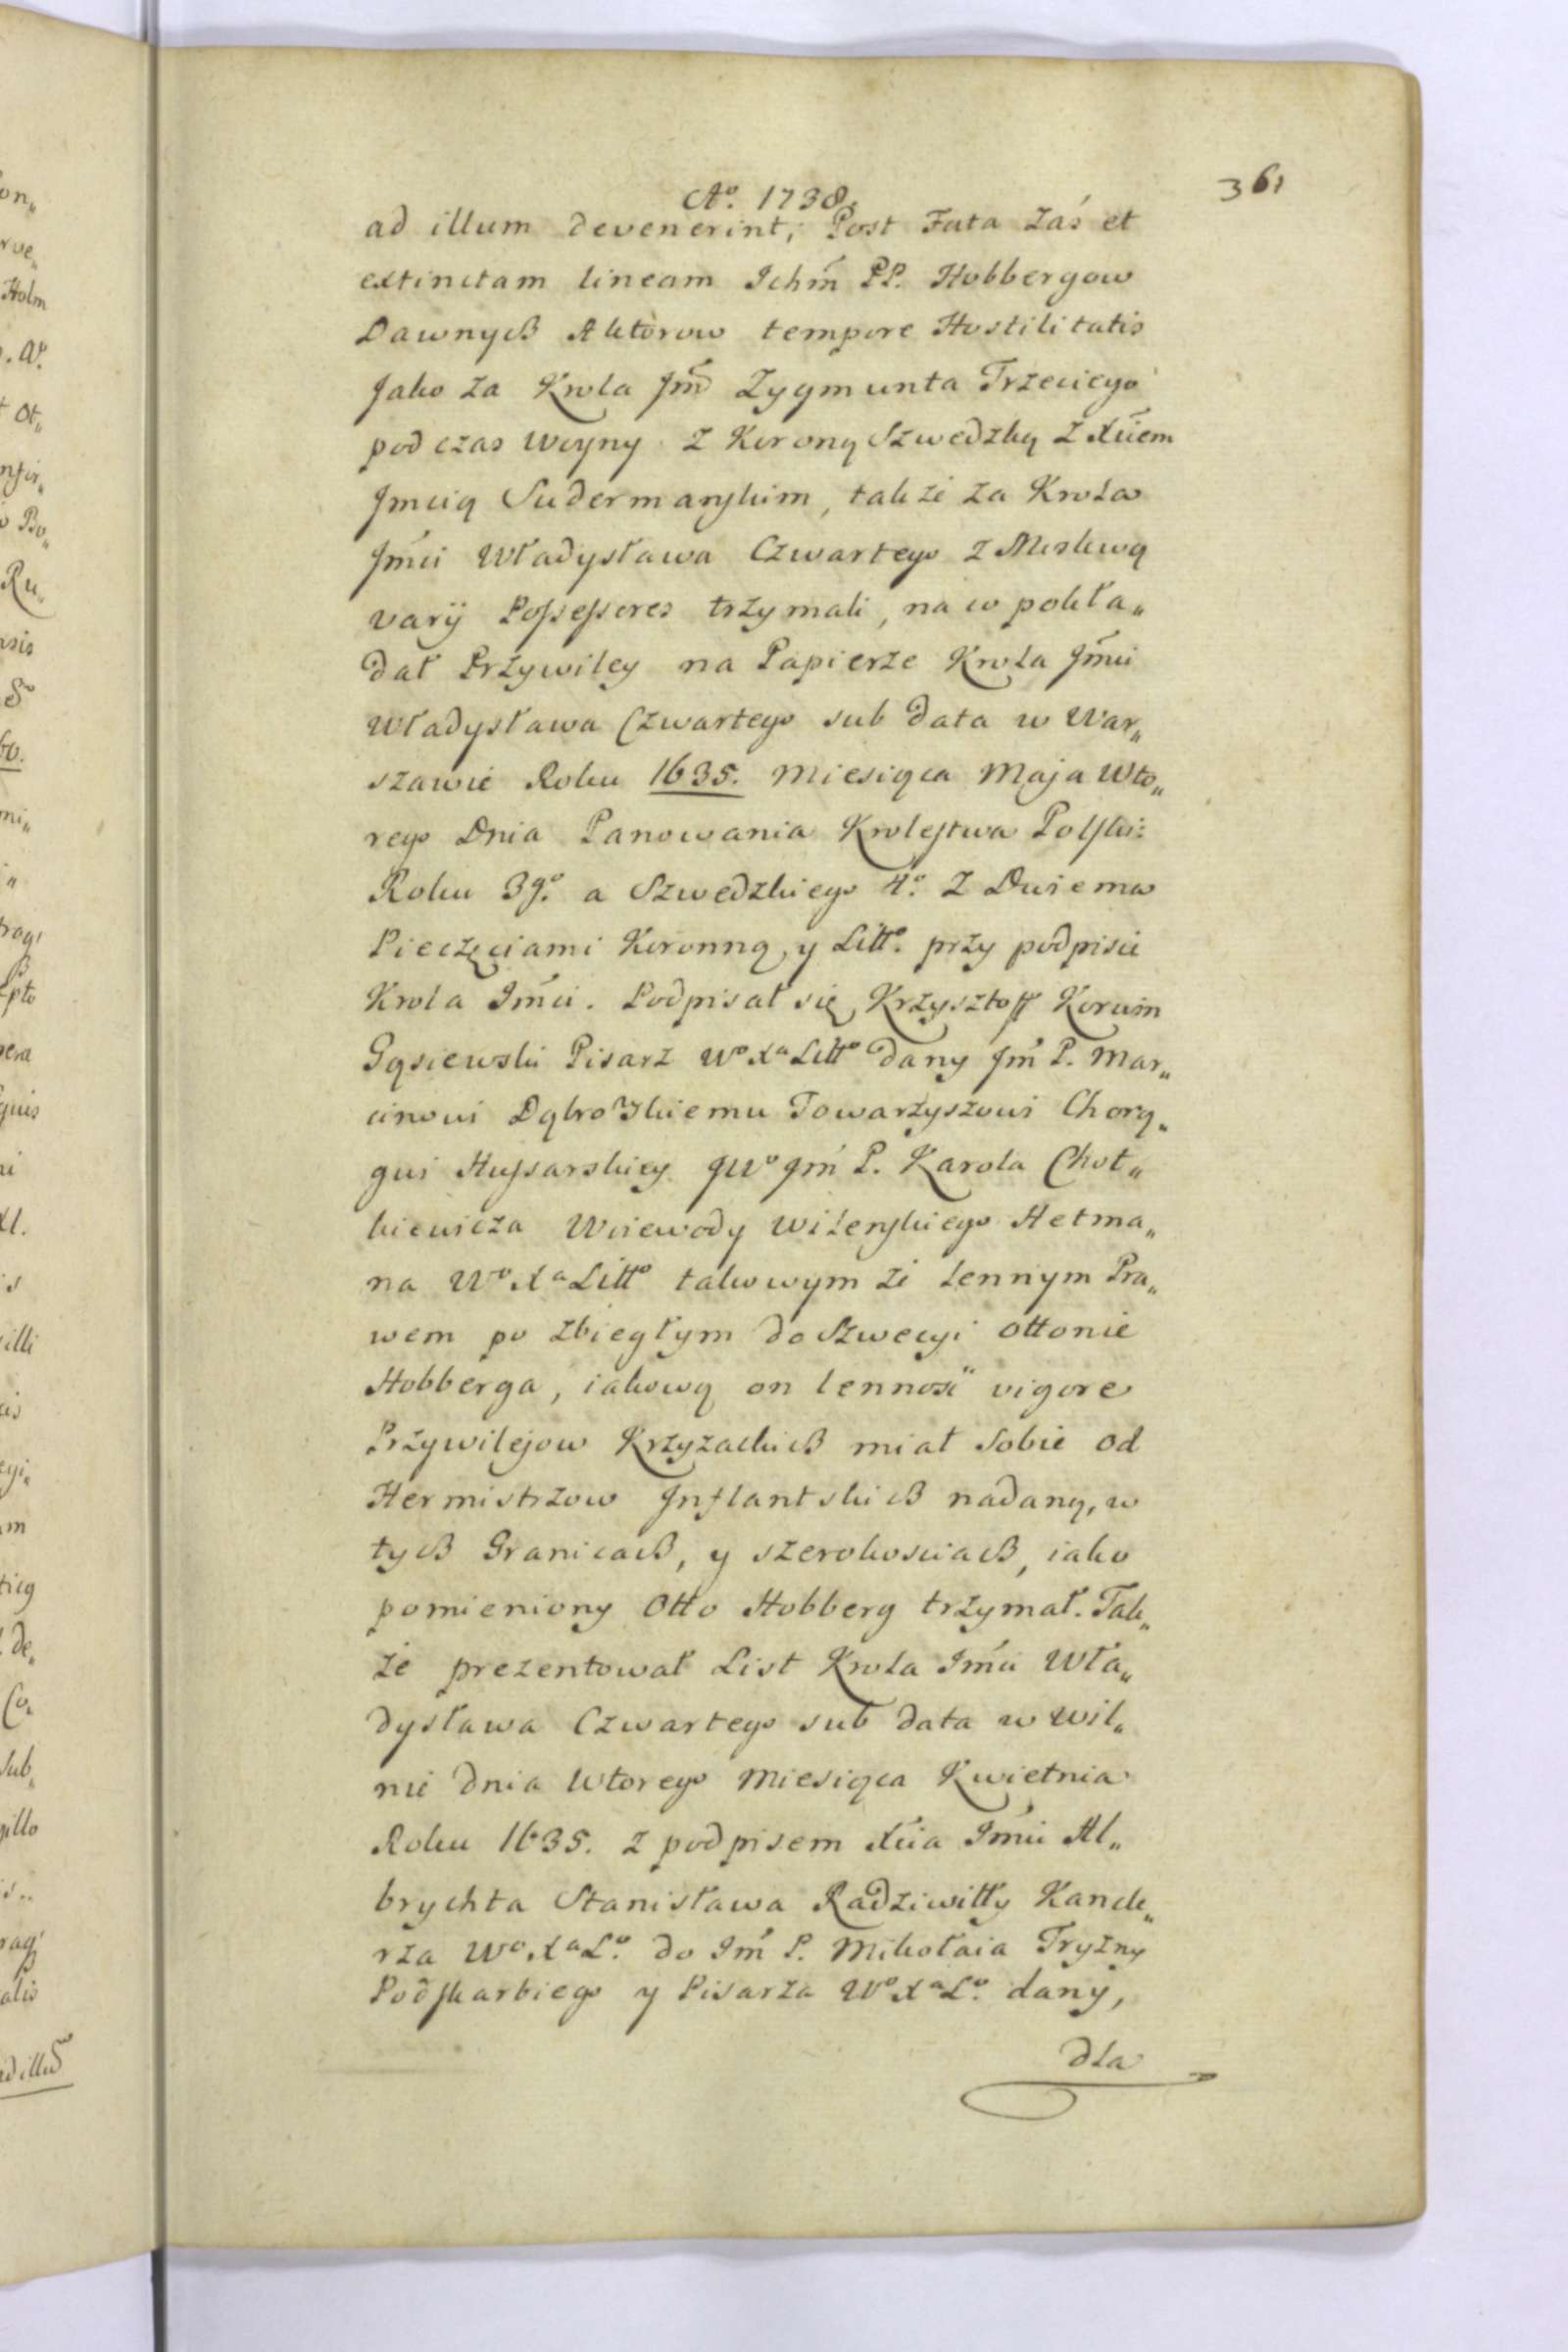 Aº. 1738.
361
ad illum devenerint, Post Fata zaś et
extinctam lineam Ichm̃ PP. Hobbergow
Dawnych Aktorow tempore Hostilitatis
Jako za Krola Jm̃ Zygmunta Trzeciego
pod czas woyny z Koroną Szwedzką z Xciem
Jmcią Sudermanskim, takze za Krola
Jmći Władysława Czwartego z Moskwą
varÿ Possessores trzymali, na co pokła„
dał Przywiley na Papierze Krola Jmći
Władysława Czwartego sub data w War„
szawie Roku 1635. Miesiąca Maja Wto„
rego Dnia Panowania Krolestwa Polski:
Roku 3gº. a Szwedzkiego 4º. z Dwiema
Pieczęciami Koronną, y Littº. przy podpisie
Krola Imći. Podpisał się Krzysztoff Korwin
Gąsiewski Pisarz Wº Xª Littº dany Jm̃ P. Mar„
cinowi Dąbrowskiemu Towarzyszowi Chorą„
gwi Hussarskiey JWº Jm̃ P. Karola Chot„
kiewicza Woiewody Wilenskiego Hetma„
na Wº Xª Littº takowym ze lennym Pra„
wem po zbiegłym do Szwecyi Ottonie
Hobberga, iakową on lennosc vigore
Przywilejow Krzyzackich miał Sobie od
Hermistrzow Jnflantskich nadaną, w
tych Granicach, y szerokosciach, iako
pomieniony Otto Hobberg trzymał. Tak„
ze prezentował List Krola Imći Wła„
dysława Czwartego sub data w Wil„
nie dnia Wtorego Miesiąca Kwietnia
Roku 1635. z podpisem Xcia Imći Al„
brychta Stanisława Radziwiłły Kancle„
rza Wº Xª Lº. do Im̃ P. Mikołaia Tryzny
Podskarbiego y Pisarza Wº Xª Lº. dany,
dla